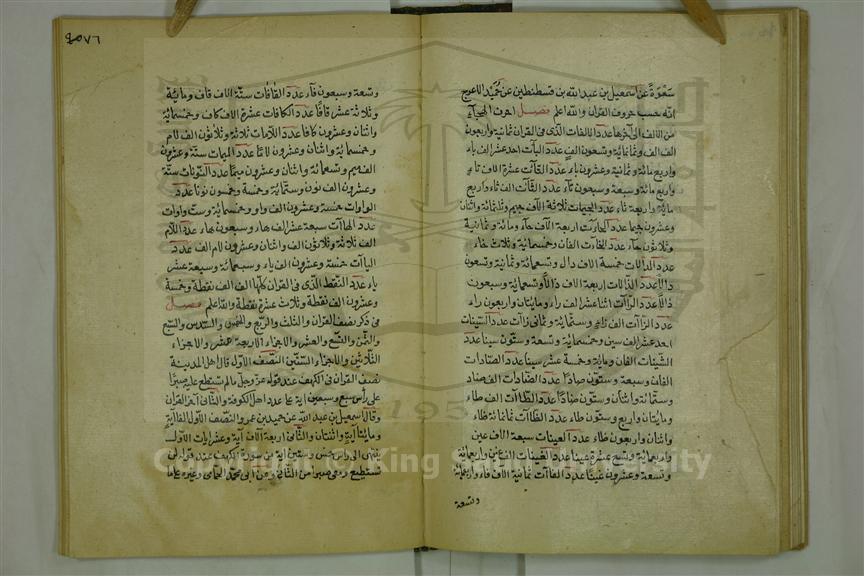 سمعوة عن اسمعيل بن عبد الله بن قسطنطين عن حميد الاعرج
انه حسب حروف القران والله اعلم فصل احرف الهجآء
من الالف الى اخرها عدد الالفات الذى فى القران ثمانية واربعون
الف الف وثمانمائة وتسعون الف عدد البآت احد عشر الف باء
واربع مائة وثمانية وعشرون باء عدد التآت عشرة الاف تاء و
اربع مائة وسبعة وسبعون تآء عدد الثآت الف ثاء واربع
مائة واربعة ثاء عدد الجيمات ثلاثة الاف جيم وثلثمائة واثنان
وعشرون جيما عدد الحاآت اربعة الاف حآء ومائة وثمانية
وثلاثون حآء عدد الخاآت الفان وخمسمائة وثلاث خاء
عدد الدالات خمسة الاف دال وتسعمائة وثمانية وتسعون
دالا عدد الذالات اربعة الاف ذالا وتسعمائة وسبعون
ذالا عدد الرآت اثنا عشر الف راء ومايتان واربعون راء
عدد الزآت الف زاى وستمائة وثمانى زآت عدد السينات
احد عشر الف سين وخمسمائة وتسعة وستون سينا عدد
الشينات الفان ومائة وخمسة عشر سينا عدد الصادات
الفان وسبعة وستون صادا عدد الضادات الف ضاد
وستمائة واثنان وستون ضادا عدد الطاآت الف طاء
ومايتان واربع وستون طاء عدد الظاآت ثمانمائة ظاء
واثنان واربعون ظاء عدد العينات سبعة الاف عين
واربعمائة وتسع عشرة عينا عدد الغينات الف غين واربعمائة
وتسعة وعشرون غينا عدد الفاآت ثمانية الاف فاء واربعمائة
وتسعة
٤٥٧٦
وتسعة وسبعون فآء عدد القافات ستة الاف قاف ومائية
وثلاثة عشر قافا عدد الكافات عشرة الاف كاف وخمسمائة
واثنان وعشرون كافا عدد اللامات ثلاثة وثلاثون الف لام
وخمسمائة واثنان وعشرون لاما عدد الميمات ستة وعشرون
الف ميم وتسعمائة واثنان وعشرون ميما عدد النونات ستة
وعشرون الف نون وستمائة وخمسة وخمسون نونا عدد
الواوات خمسة وعشرون الف واو وخمسمائة وست واوات
عدد الهاآت سبعة عشر الف هاء وسبعون هاء عدد اللام
الف ثلاثة وثلاثون الف واثنان وعشرون لام الف عدد
الياآت خمسة وعشرون الف ياء وسبعمائة وسبعة عشر
ياء عدد النقط الذى فى القران كلها الف الف نقطة وخمسة
وعشرون الف نقطة وثلاث عشرة نقطة والله اعلم فصل
فى ذكر نصف القران والثلث والربع والخمس والسدس والسبع
والثمن والتسع والعشر والاجزاء الاربعة عشر والاجزاء
الثلاثين والاجزاء الستين النصف الاول قال اهل المدينة
نصف القران فى الكهف عند قوله عز وجل مالم تستطع عليه صبرا
على راس سبع وسبعين اية عا عدد اهل الكوفة والثانى اخر القران
وقال اسمعيل بن عبد الله عن حميد بن عمر والنصف الاول الفا اية
ومايتا آية واثنتان والثانى اربعة الاف آية وعشر ايات الاول
ينتهى الى راس خمس وستين اية من سورة الكهف عند قوله لن
تستطيع ومعى صبرا من الثانى وعن ابى محمد الحمامى وغيره عاما
Copyright © King Saud University
195